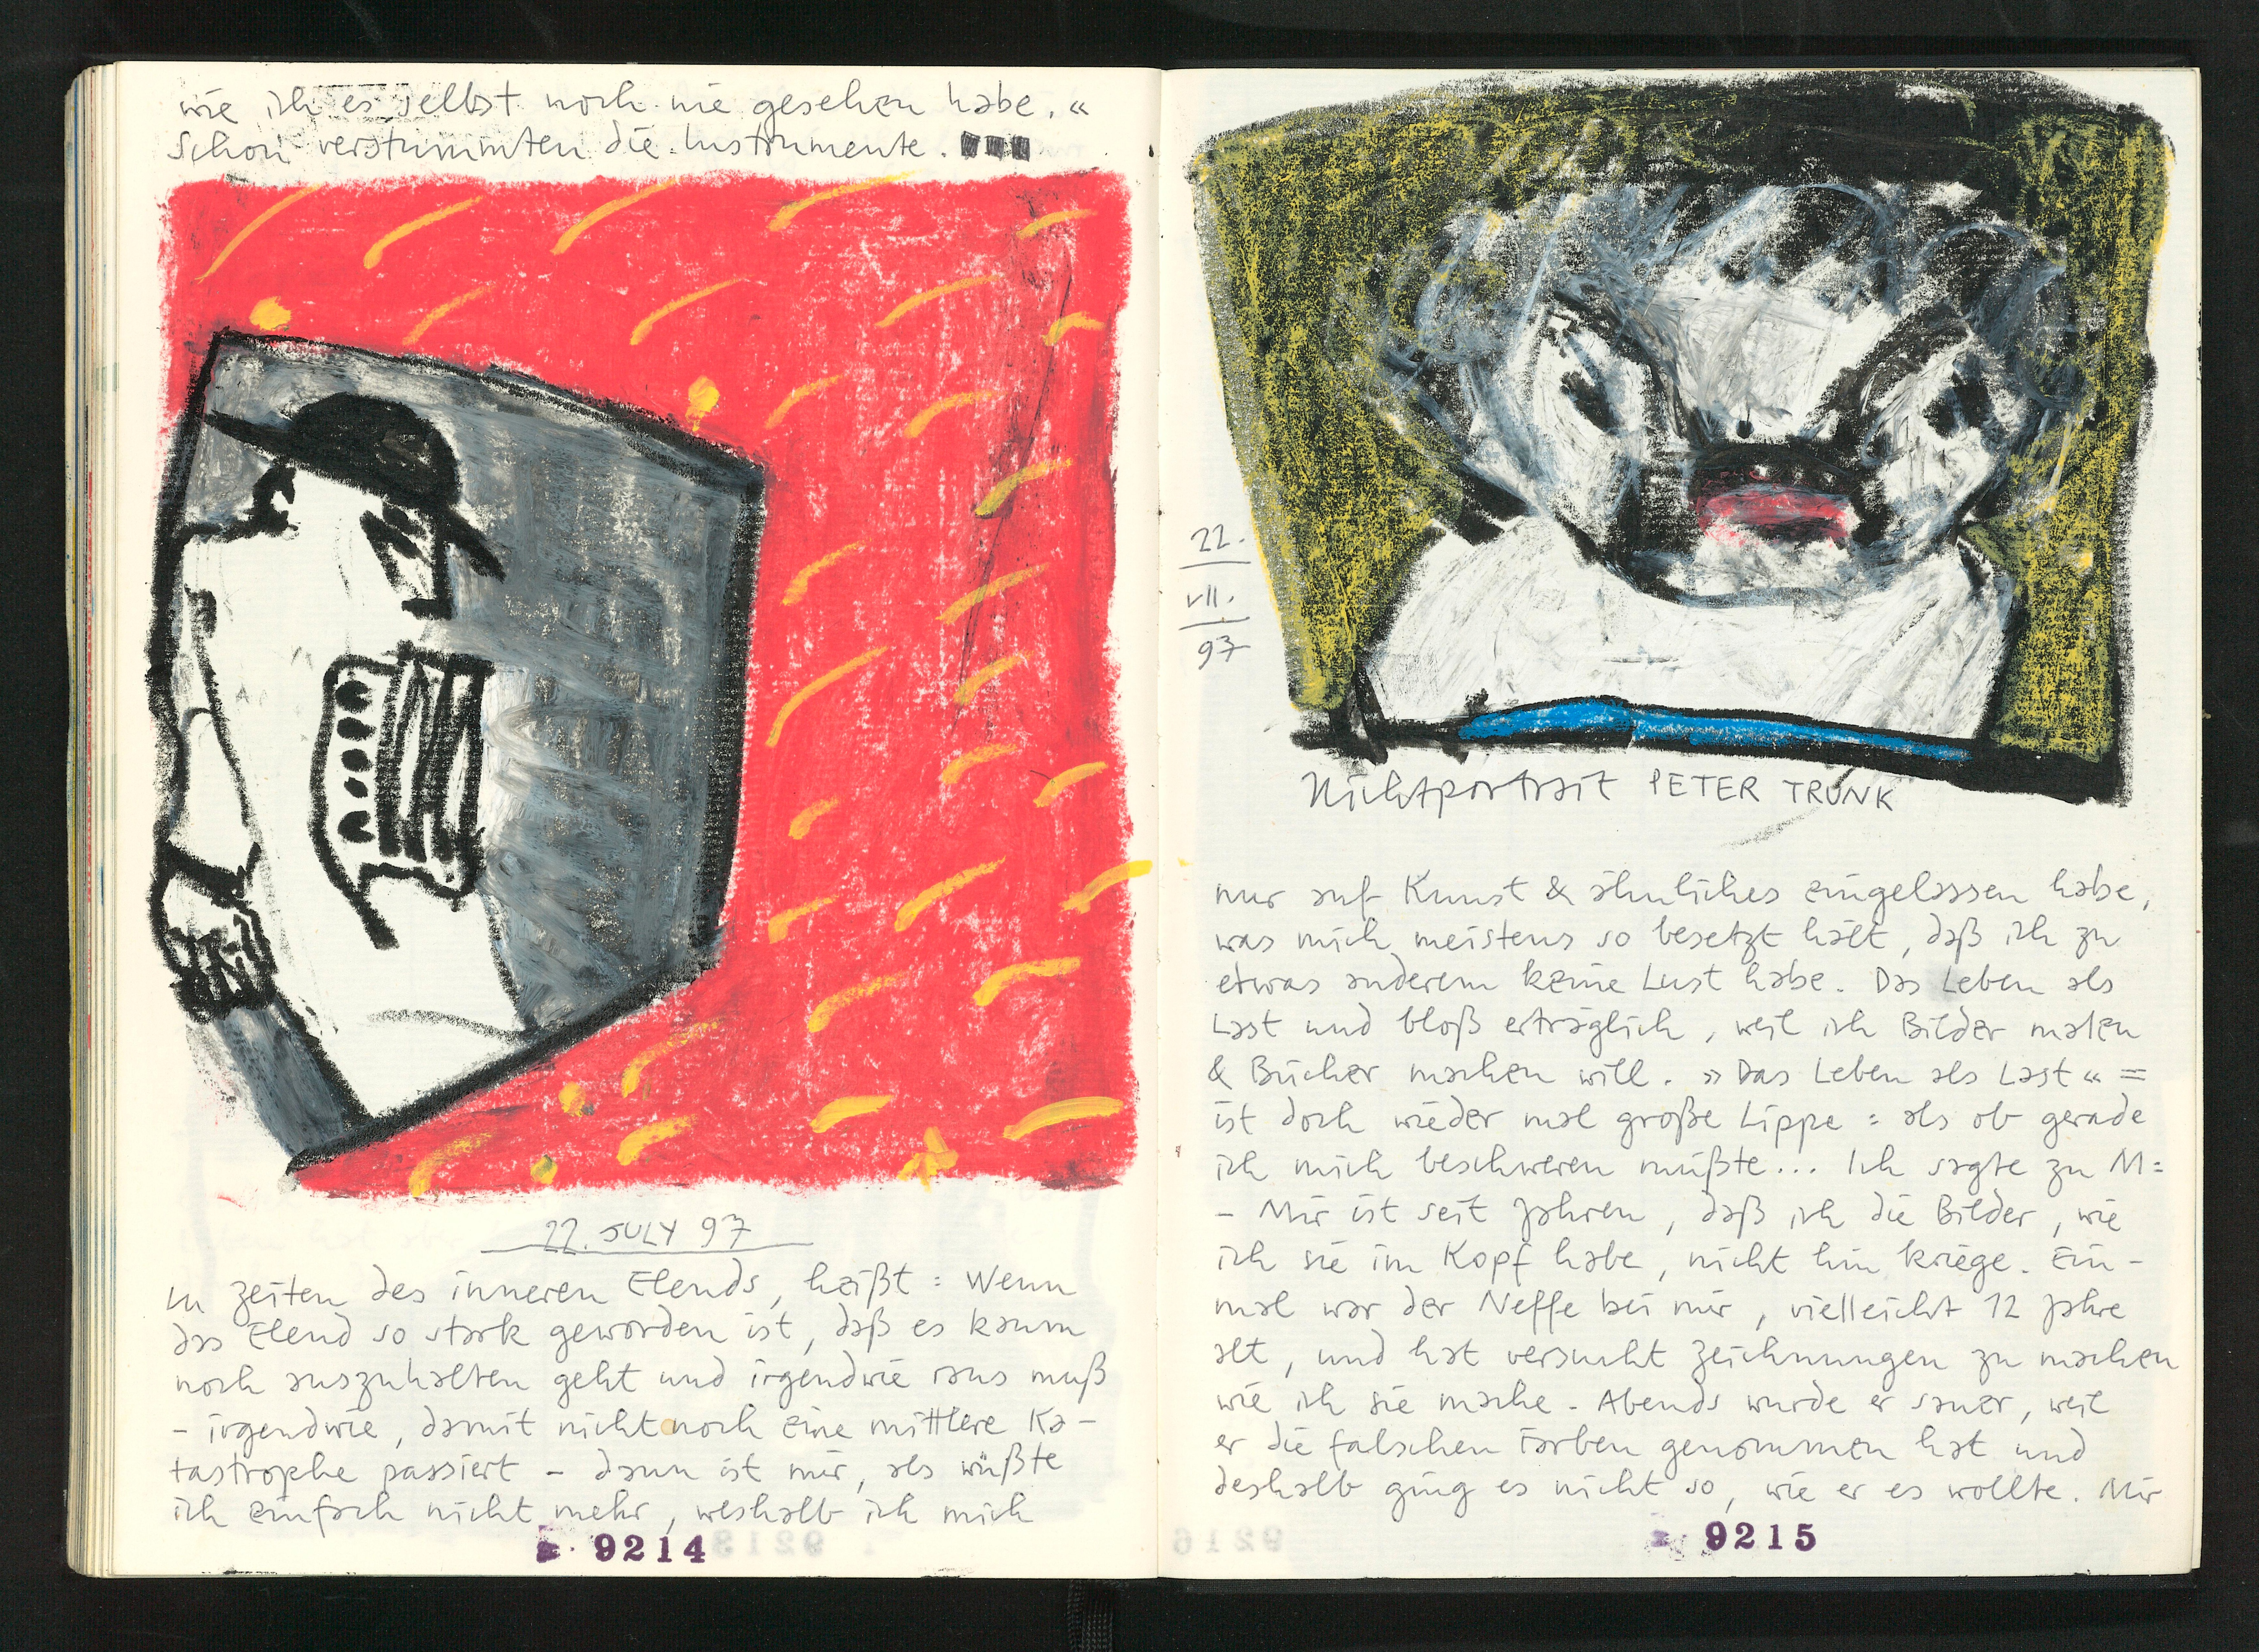 wie ich es selbst noch nie gesehen habe. «
Schon verstummten die Instrumente.
22. JULY 97
In Zeiten des inneren Elends, heißt: Wenn
das Elend so stark geworden ist, daß es kaum
noch auszuhalten geht und irgendwie raus muß
– irgendwie, damit nicht noch eine mittlere Ka-
tastrophe passiert – dann ist mir, als wüßte
ich einfach nicht mehr, weshalb ich mich
9214
22.
VII.
97
Nichtportrait PETER TRUNK
nur auf Kunst & ähnliches eingelassen habe,
was mich meistens so besetzt hält, daß ich zu
etwas anderem keine Lust habe. Das Leben als
Last und bloß erträglich, weil ich Bilder malen
& Bücher machen will. » Das Leben als Last « =
ist doch wieder mal große Lippe: als ob gerade
ich mich beschweren müßte... Ich sagte zu M:
– Mir ist seit Jahren, daß ich die Bilder, wie
ich sie im Kopf habe, nicht hin kriege. Ein-
mal war der Neffe bei mir, vielleicht 12 Jahre
alt, und hat versucht Zeichnungen zu machen
wie ich sie mache. Abends wurde er sauer, weil
er die falschen Farben genommen hat und
deshalb ging es nicht so, wie er es wollte. Mir
9215